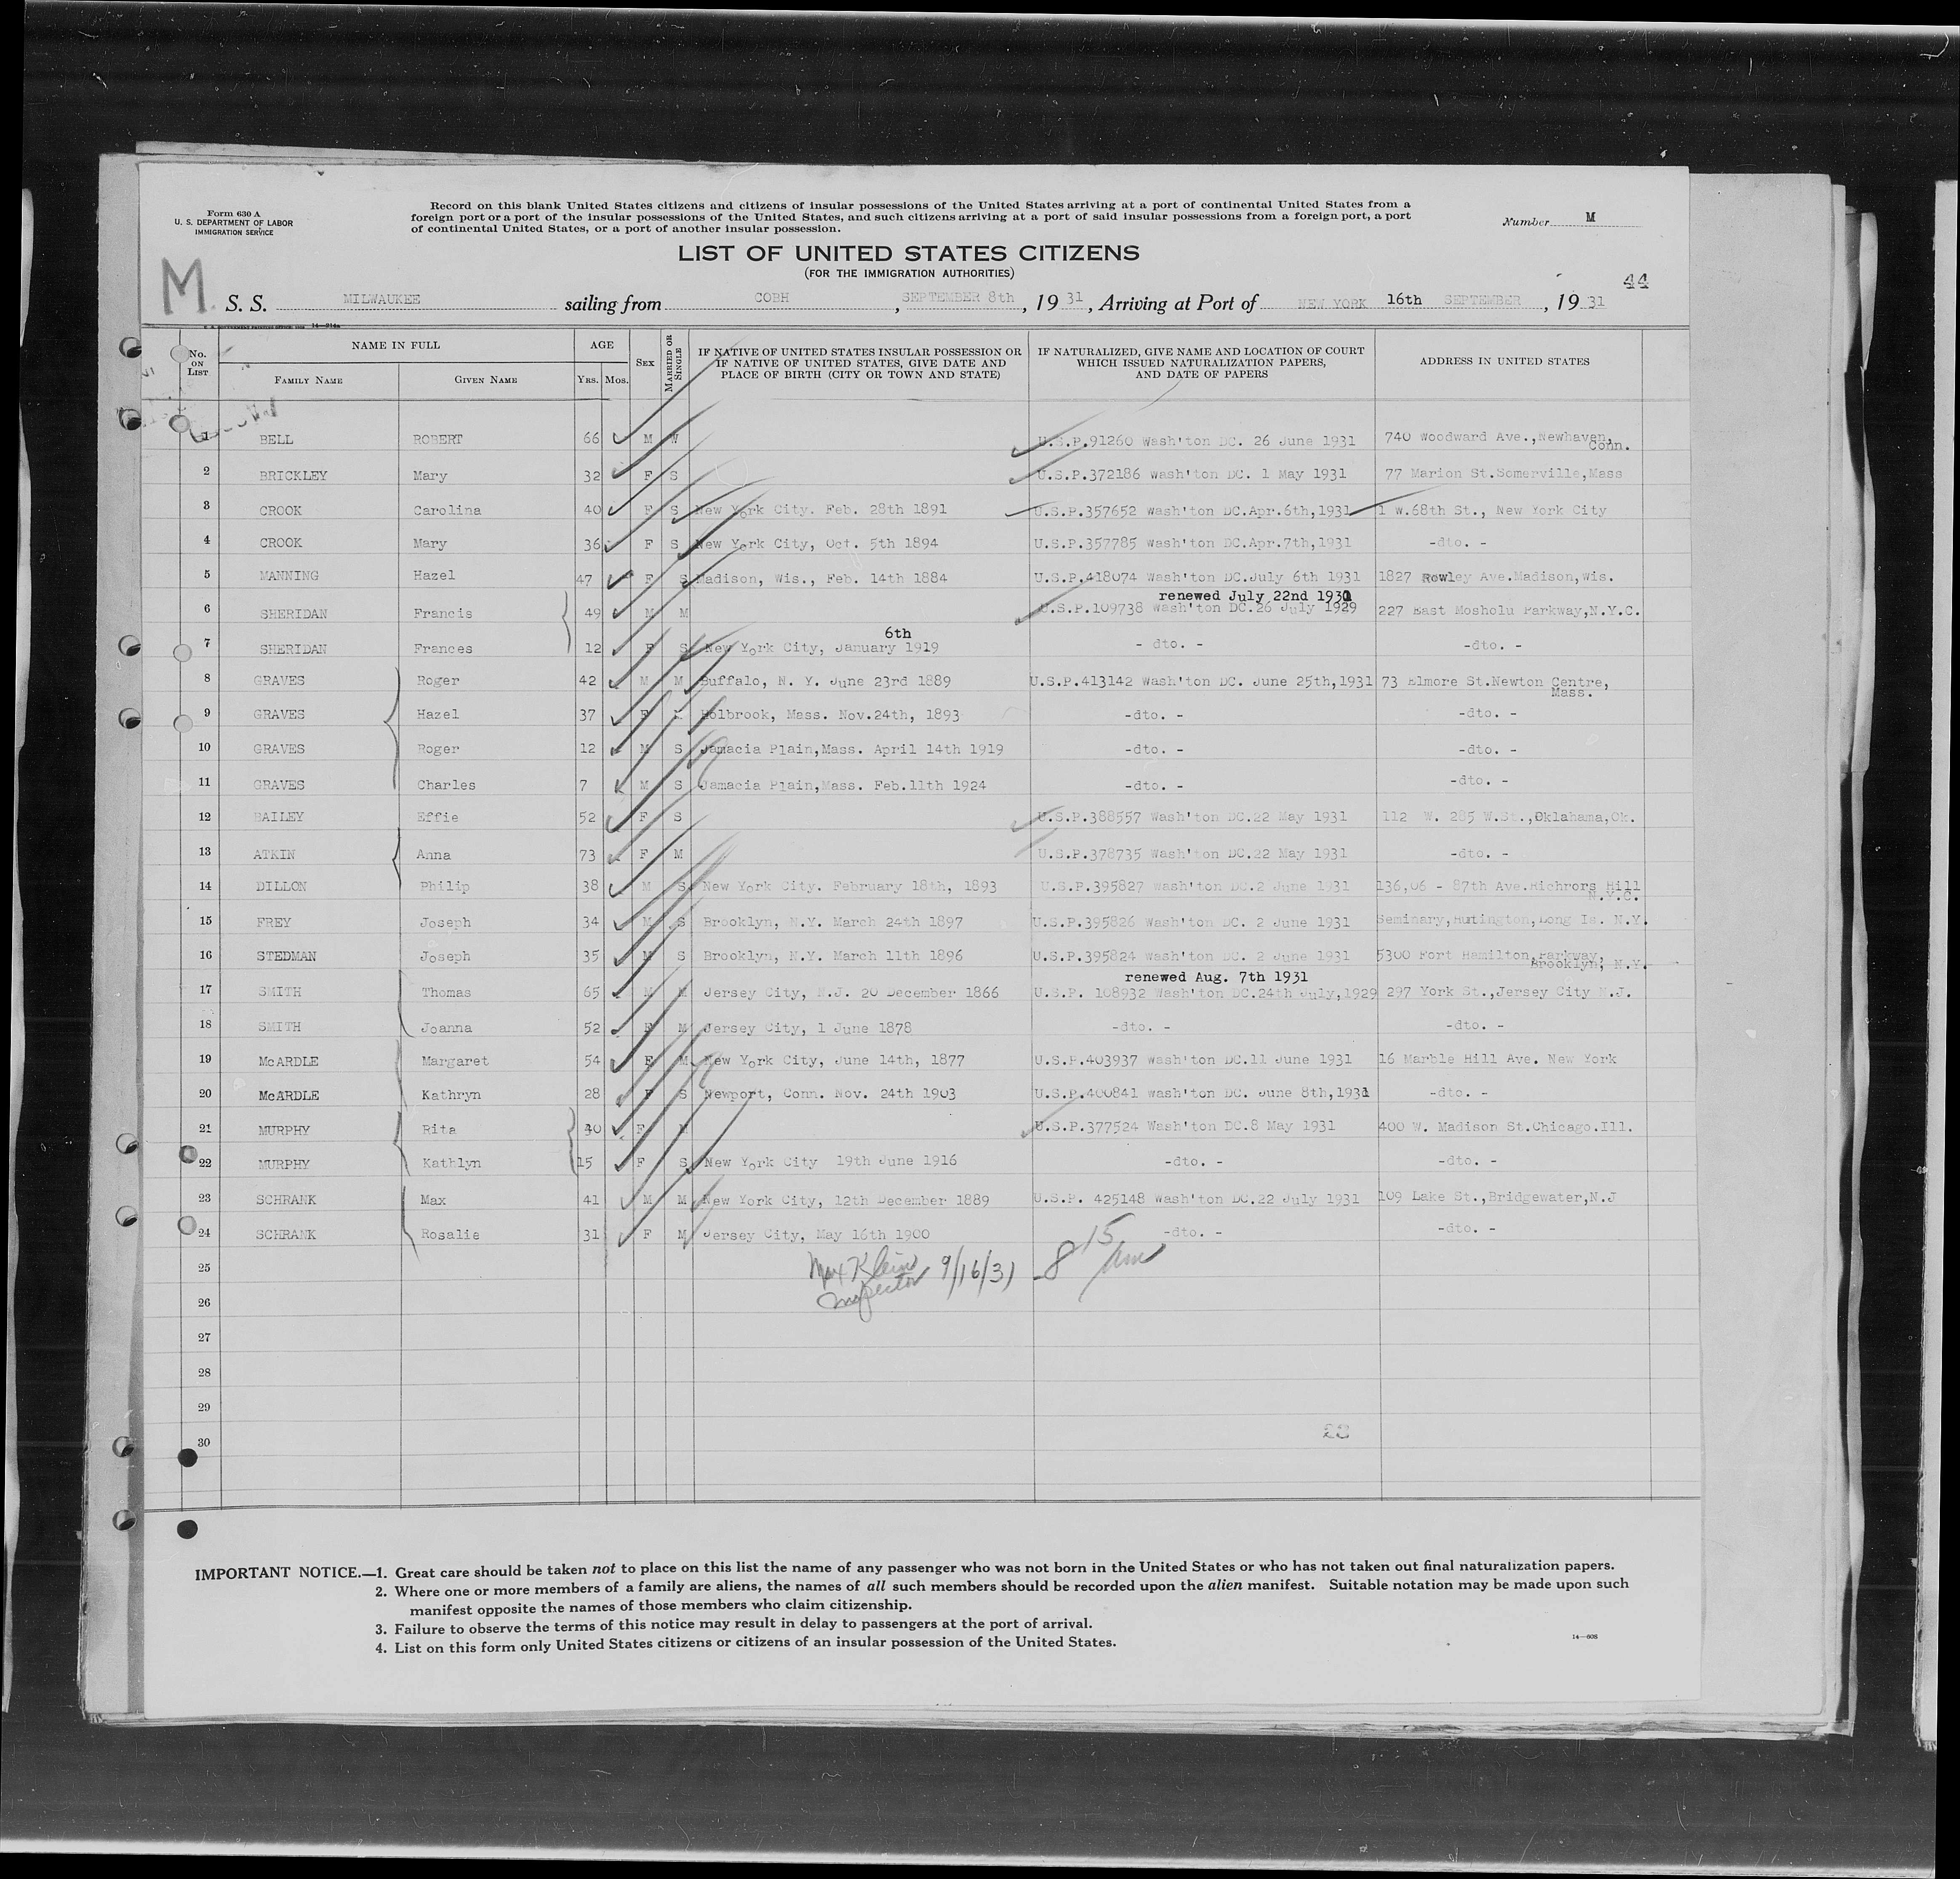 Form 630 A
U. S. DEPARTMENT OF LABOR
IMMIGRATION SERVICE
Record on this blank United States citizens and citizens of insular possessions of the United States arriving at a port of continental United States from a
foreign port or a port of the insular possessions of the United States, and such citizens arriving at a port of said insular possessions from a foreign port, a port
of continental United States, or a port of another insular possession.
Number M
LIST OF UNITED STATES CITIZENS
(FOR THE IMMIGRATION AUTHORITIES)
44
M. S. S. MILWAUKEE sailing from COBH, SEPTEMBER 8th, 1931, Arriving at Port of NEW YORK 16th SEPTEMBER, 1931
No. ON LIST NAME IN FULL FAMILY NAME GIVEN NAME AGE YRS. MOS. SEX MARRIED OR SINGLE IF NATIVE OF UNITED STATES INSULAR POSSESSION OR IF NATIVE OF UNITED STATES, GIVE DATE AND PLACE OF BIRTH (CITY OR TOWN AND STATE) IF NATURALIZED, GIVE NAME AND LOCATION OF COURT WHICH ISSUED NATURALIZATION PAPERS, AND DATE OF PAPERS ADDRESS IN UNITED STATES
1 BELL ROBERT 66 M W U.S.P.91260 Wash'ton DC. 26 June 1931 740 Woodward Ave.,Newhaven, Conn.
2 BRICKLEY Mary 32 F S U.S.P.372186 Wash'ton DC. 1 May 1931 77 Marion St.Somerville,Mass
3 CROOK Carolina 40 F S New York City. Feb. 28th 1891 U.S.P.357652 Wash'ton DC.Apr.6th,1931 1 W.68th St., New York City
4 CROOK Mary 36 F S New York City, Oct. 5th 1894 U.S.P.357785 Wash'ton DC.Apr.7th,1931 -dto. -
5 MANNING Hazel 47 F S Madison, Wis., Feb. 14th 1884 U.S.P.418074 Wash'ton DC.July 6th 1931 1827 Rowley Ave.Madison,Wis.
renewed July 22nd 1931
6 SHERIDAN Francis 49 M M U.S.P.109738 Wash'ton DC.26 July 1929 227 East Mosholu Parkway,N.Y.C.
6th
7 SHERIDAN Frances 12 F S New York City, January 1919 - dto. - -dto. -
8 GRAVES Roger 42 M M Buffalo, N. Y. June 23rd 1889 U.S.P.413142 Wash'ton DC. June 25th,1931 73 Elmore St.Newton Centre, Mass.
9 GRAVES Hazel 37 F M Holbrook, Mass. Nov.24th, 1893 -dto. - -dto. -
10 GRAVES Roger 12 M S Jamacia Plain,Mass. April 14th 1919 -dto. - -dto. -
11 GRAVES Charles 7 M S Jamacia Plain,Mass. Feb.11th 1924 -dto. - -dto. -
12 BAILEY Effie 52 F S U.S.P.388557 Wash'ton DC.22 May 1931 112 W. 285 W.St.,Oklahama,Ok.
13 ATKIN Anna 73 F M U.S.P.378735 Wash'ton DC.22 May 1931 -dto. -
14 DILLON Philip 38 M S New York City. February 18th, 1893 U.S.P.395827 Wash'ton DC.2 June 1931 136,06 - 87th Ave.Richrors Hill N.Y.C.
15 FREY Joseph 34 M S Brooklyn, N.Y. March 24th 1897 U.S.P.395826 Wash'ton DC. 2 June 1931 Seminary,Hutington,Long Is. N.Y.
16 STEDMAN Joseph 35 M S Brooklyn, N.Y. March 11th 1896 U.S.P.395824 Wash'ton DC. 2 June 1931 5300 Fort Hamilton,Parkway, Brooklyn, N.Y.
renewed Aug. 7th 1931
17 SMITH Thomas 65 M M Jersey City, N.J. 20 December 1866 U.S.P. 108932 Wash'ton DC.24th July,1929 297 York St.,Jersey City N.J.
18 SMITH Joanna 52 F M Jersey City, 1 June 1878 -dto. - -dto. -
19 McARDLE Margaret 54 F M New York City, June 14th, 1877 U.S.P.403937 Wash'ton DC.11 June 1931 16 Marble Hill Ave. New York
20 McARDLE Kathryn 28 F S Newport, Conn. Nov. 24th 1903 U.S.P.400841 Wash'ton DC. June 8th,1931 -dto. -
21 MURPHY Rita 40 F M U.S.P.377524 Wash'ton DC.8 May 1931 400 W. Madison St.Chicago.Ill.
22 MURPHY Kathlyn 15 F S New York City 19th June 1916 -dto. - -dto. -
23 SCHRANK Max 41 M M New York City, 12th December 1889 U.S.P. 425148 Wash'ton DC.22 July 1931 109 Lake St.,Bridgewater,N.J
24 SCHRANK Rosalie 31 F M Jersey City, May 16th 1900 -dto. - -dto. -
25 Max Klein 9/16/31 - 8 15 am
Inspector
26
27
28
29
30
IMPORTANT NOTICE.—1. Great care should be taken not to place on this list the name of any passenger who was not born in the United States or who has not taken out final naturalization papers.
2. Where one or more members of a family are aliens, the names of all such members should be recorded upon the alien manifest. Suitable notation may be made upon such
manifest opposite the names of those members who claim citizenship.
3. Failure to observe the terms of this notice may result in delay to passengers at the port of arrival.
4. List on this form only United States citizens or citizens of an insular possession of the United States.
14—608